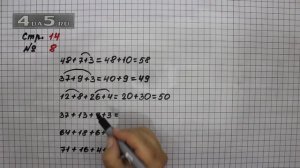 4DA5.RU
Стр. 14
№ 8
48+7+3=48+10=58
37+9+3=40+9=49
12+8+26+4=20+30=50
37+13+
+3=
64+18+6+
71+16+4+